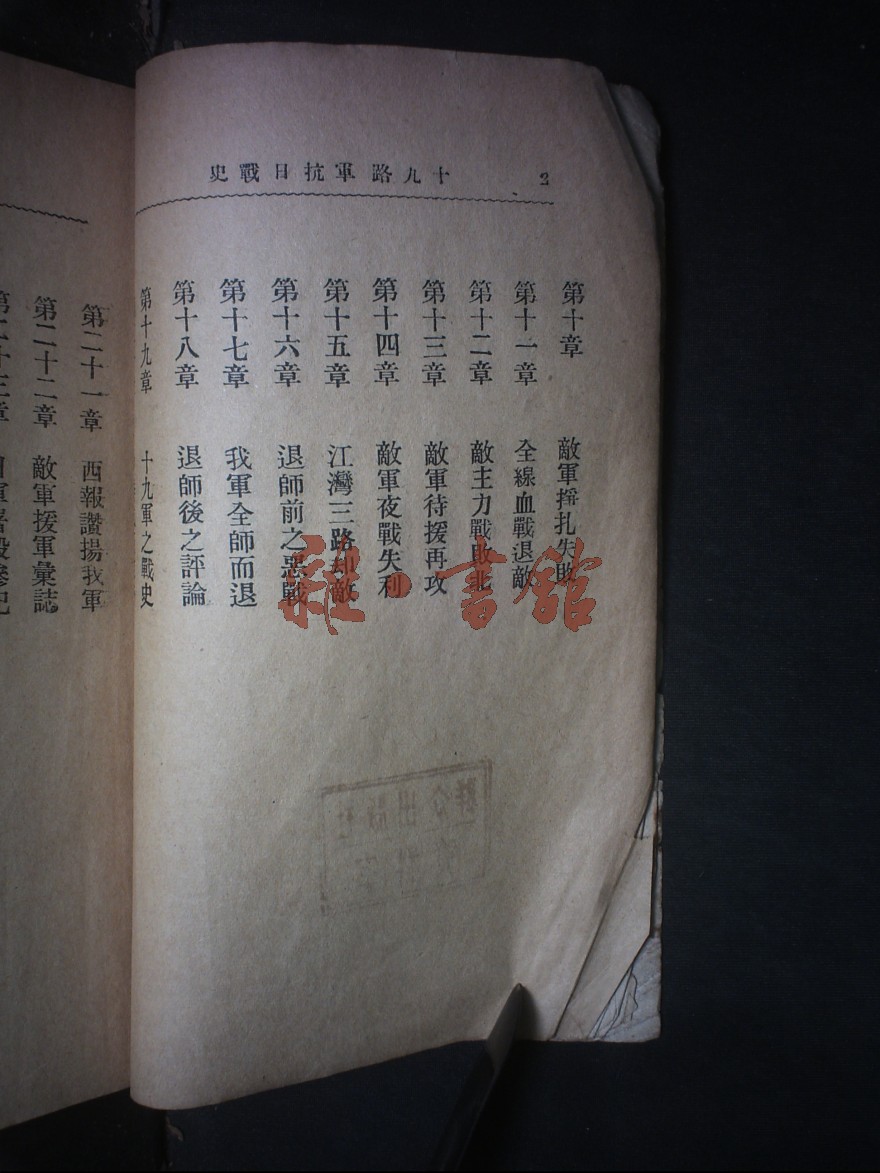 十九路軍抗日戰史 2
第十章 敵軍掙扎失敗
第十一章 全線血戰退敵
第十二章 敵主力戰敗北
第十三章 敵軍待援再攻
第十四章 敵軍夜戰失利
第十五章 江灣三路却敵
第十六章 退師前之惡戰
第十七章 我軍全師而退
第十八章 退師後之評論
第十九章 十九軍之戰史
第二十一章 西報讚揚我軍
第二十二章 敵軍援軍彙誌
第二十三章
雜·書館